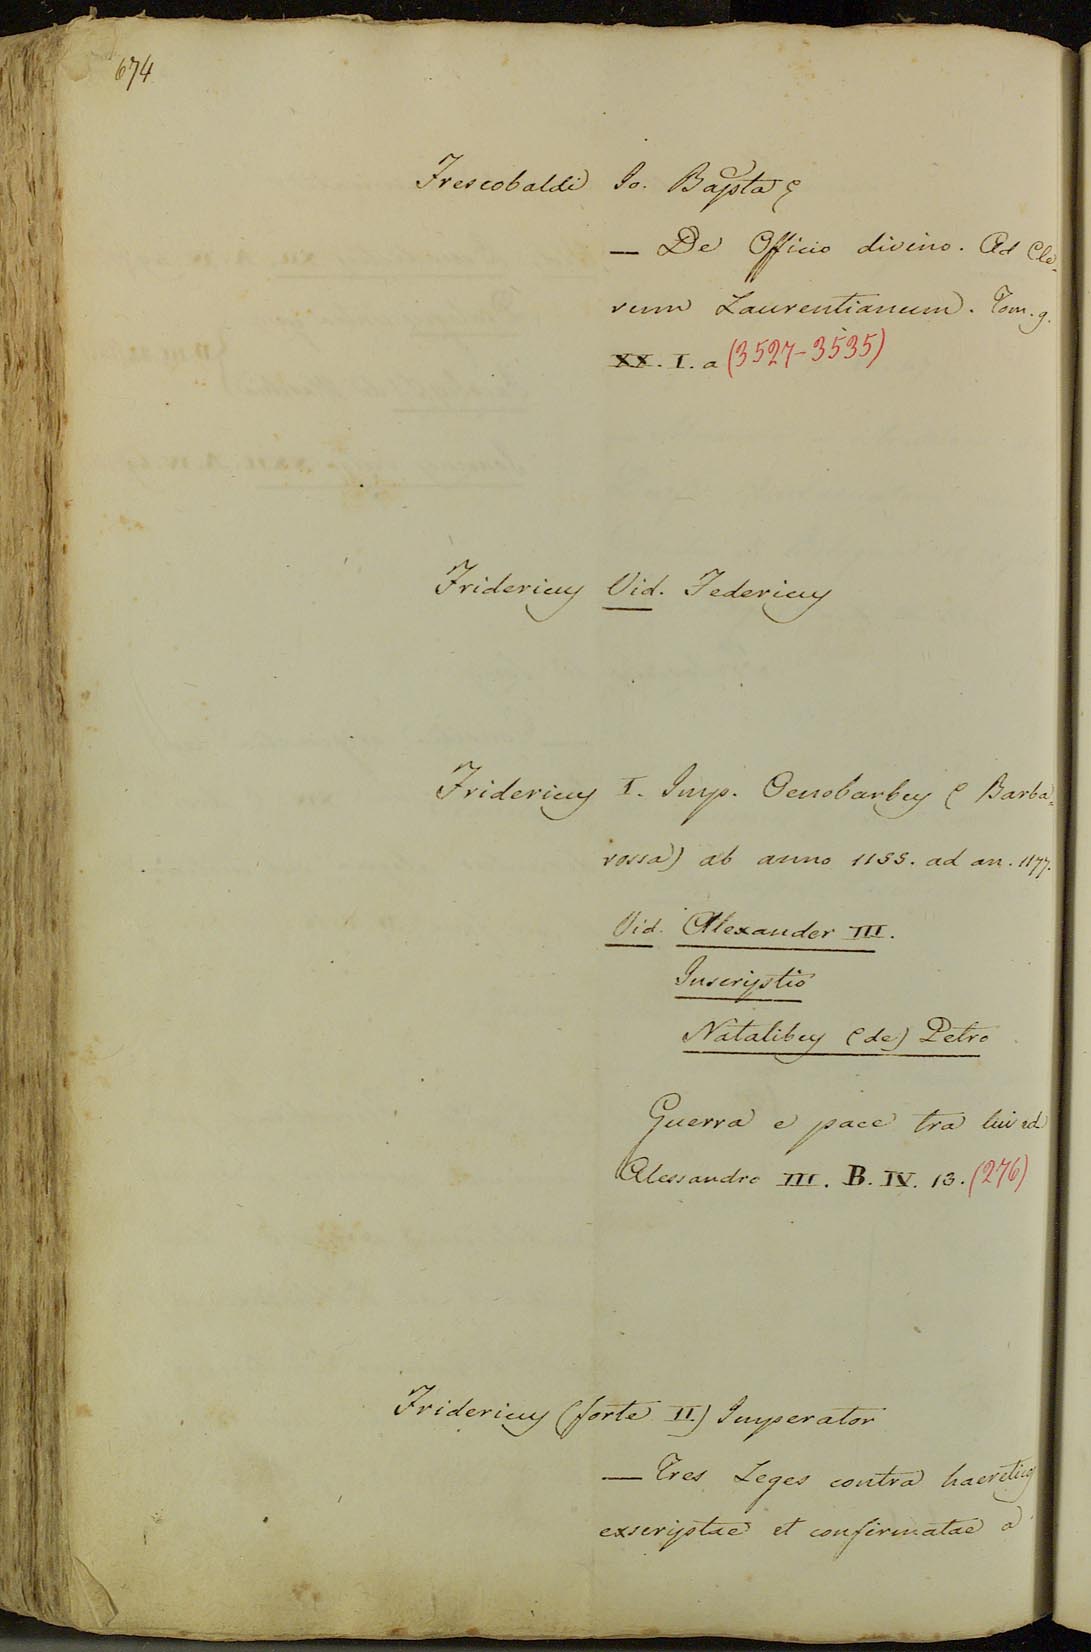 674
Frescobaldi Io. Bapsta
— De Officio divino. Ad Cle-
rum Laurentianum. Tom. 9.
XX. I. a (3527-3535)
Fridericus Vid. Federicus
Fridericus I. Imp. Oenobarbus (Barba-
rossa) ab anno 1155. ad an. 1177.
Vid. Alexander III.
Inscriptio
Natalibus (de) Petro
Guerra e pace tra lui ed
Alessandro III. B. IV. 13. (276)
Fridericus (forte II) Imperator
— Tres Leges contra haereticos
exscriptae et confirmatae a